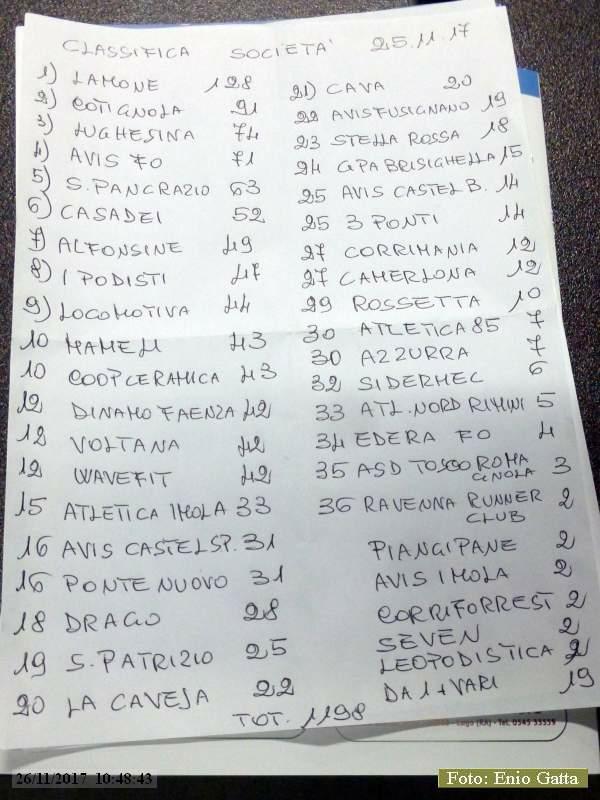 CLASSIFICA SOCIETA' 25.11.17
1) LAMONE 128
2) COTIGNOLA 91
3) LUGHESINA 74
4) AVIS FO 71
5) S. PANCRAZIO 63
6) CASADEI 52
7) ALFONSINE 49
8) I PODISTI 47
9) LOCOMOTIVA 44
10 MAMELI 43
10 COOPCERAMICA 43
12 DINAMO FAENZA 42
12 VOLTANA 42
12 WAVEFIT 42
15 ATLETICA IMOLA 33
16 AVIS CASTELSP. 31
16 PONTE NUOVO 31
18 DRAGO 28
19 S. PATRIZIO 25
20 LA CAVEJA 22
21) CAVA 20
22 AVIS FUSIGNANO 19
23 STELLA ROSSA 18
24 GPA BRISIGHELLA 15
25 AVIS CASTEL B. 14
25 3 PONTI 14
27 CORRIMANIA 12
27 CAMERLONA 12
29 ROSSETTA 10
30 ATLETICA 85 7
30 AZZURRA 7
32 SIDERMEC 6
33 ATL. NORD RIMINI 5
34 EDERA FO 4
35 ASD TOSCO ROMA
GNOLA 3
36 RAVENNA RUNNER 2
CLUB
PIANGIPANE 2
AVIS IMOLA 2
CORRIFORREST 2
SEVEN 2
LEOPODISTICA 2
DA 1 + VARI 19
TOT. 1198
- Lugo (RA) - Tel. 0545 33539
26/11/2017 10:48:43
Foto: Enio Gatta